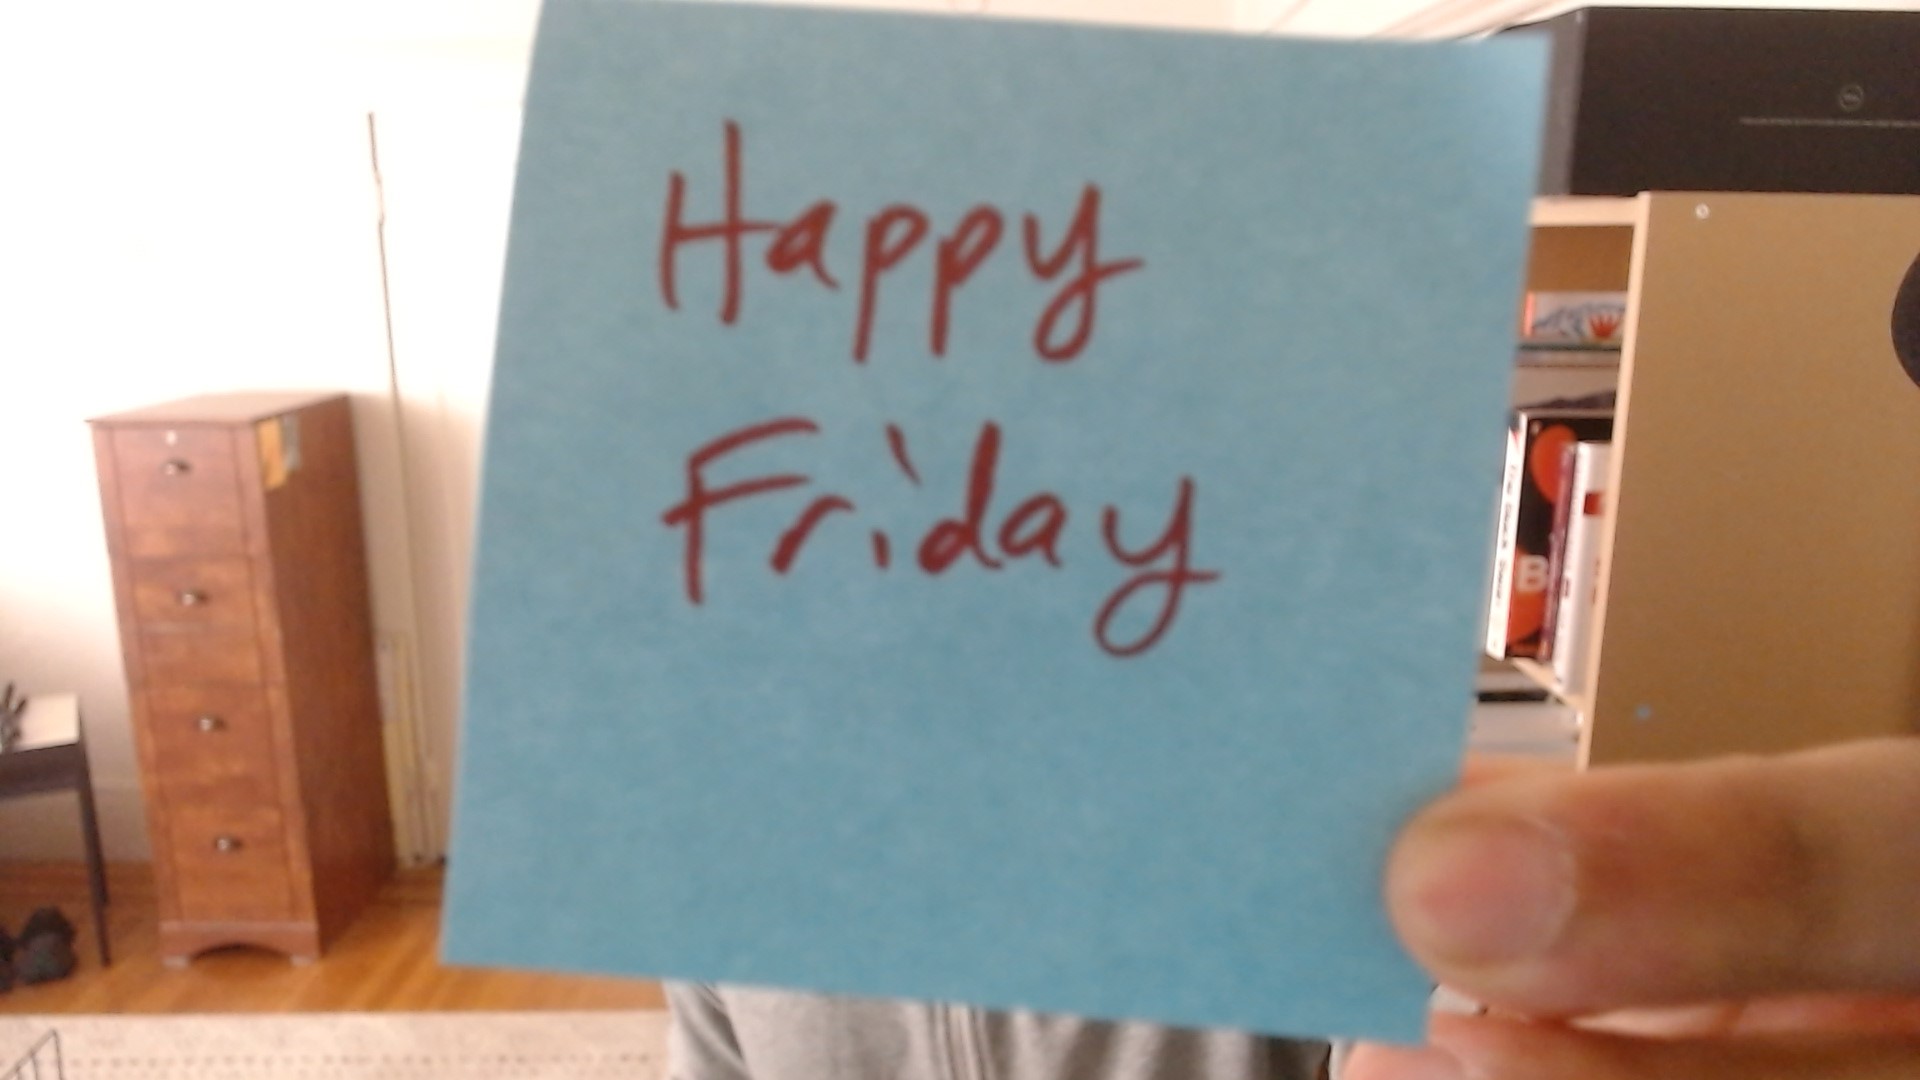 Happy
Friday
B